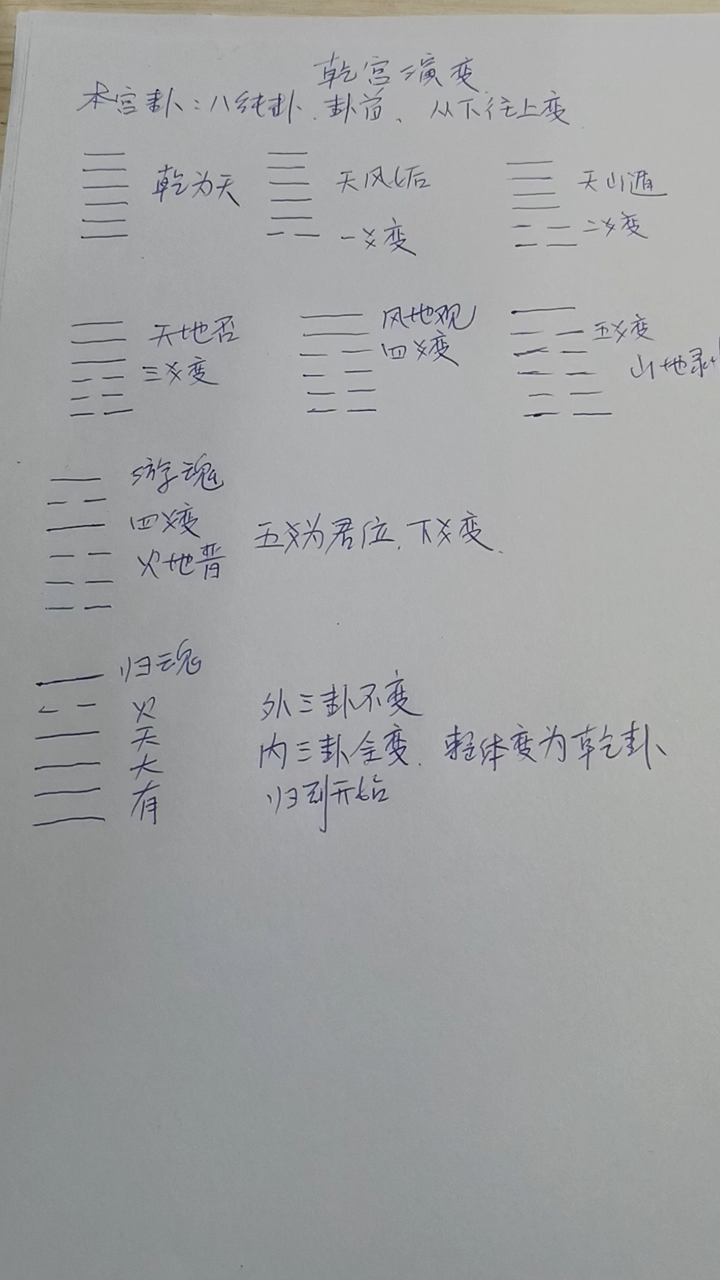 乾宫演变
本宫卦：八纯卦、卦首、从下往上变
乾为天
天风姤
一爻变
天山遁
二爻变
天地否
三爻变
风地观
四爻变
五爻变
山地剥
游魂
四爻变
火地晋
五爻为君位、下爻变.
归魂
火
天
大
有
外三卦不变
内三卦全变、整体变为乾卦
归到开始